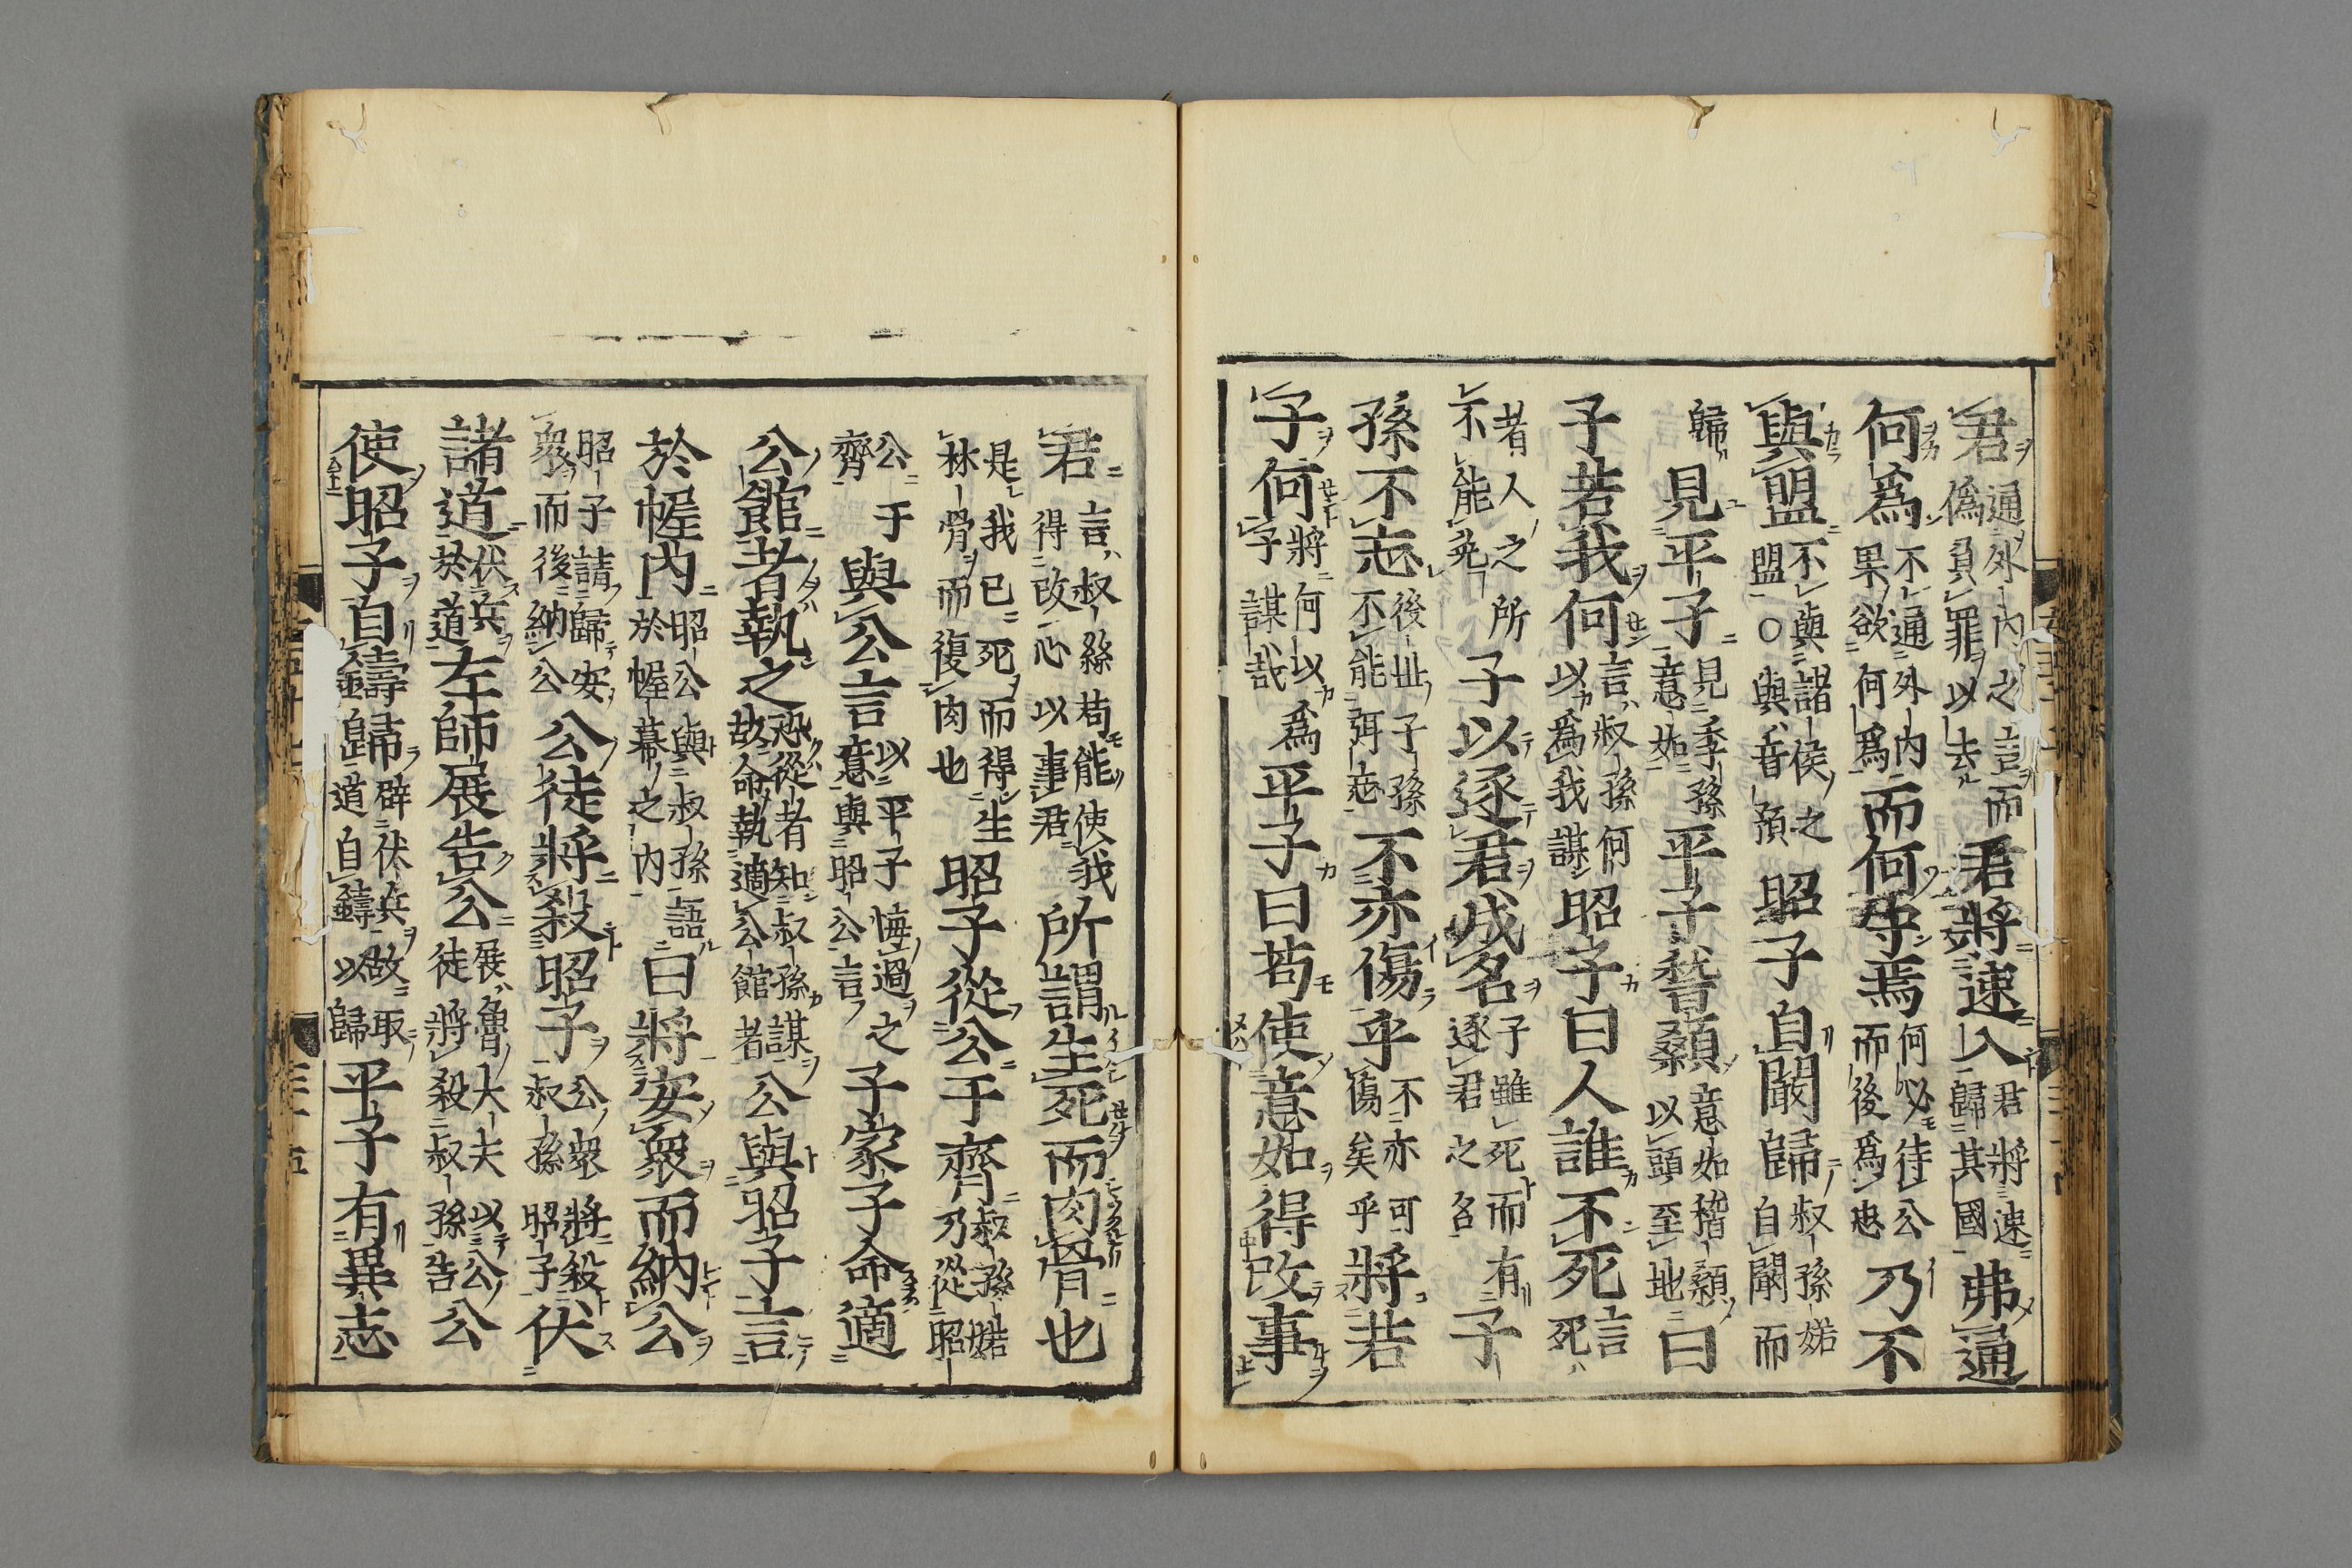 君通外内之言而僞負罪以去君將速入君將速歸其國弗通
何爲不通外内果欲何爲而何守焉何必待公而後爲忠乃不
與盟不與諸侯之盟○與音預昭子自闞歸叔孫婼自闞而
歸見平子見季孫意如平子稽顙意如稽顙以頭至地曰
子若我何言叔孫何以爲我謀昭子曰人誰不死言死
者人之所不能免子以逐君成名子雖死而有逐君之名子
孫不忘後世子孫不能弭忘不亦傷乎不亦可傷矣乎將若
子何將何以爲子謀哉平子曰苟使意如得改事
君言叔孫苟能使我得改心以事君所謂生死而肉骨也
是我已死而得生枯骨而復肉也昭子從公于齊叔孫婼乃從昭
公于齊與公言以平子悔過之意與昭公言子家子命適
公館者執之恐從者知叔孫謀故命執適公館者公與昭子言
於幄内昭公與叔孫語於幄幕之内曰將安衆而納公
昭子請歸安衆而後納公公徒將殺昭子公衆將殺叔孫昭子伏
諸道伏兵於道左師展告公展魯大夫以公徒將殺叔孫告公公
使昭子自鑄歸辟伏兵故取道自鑄以歸平子有異志